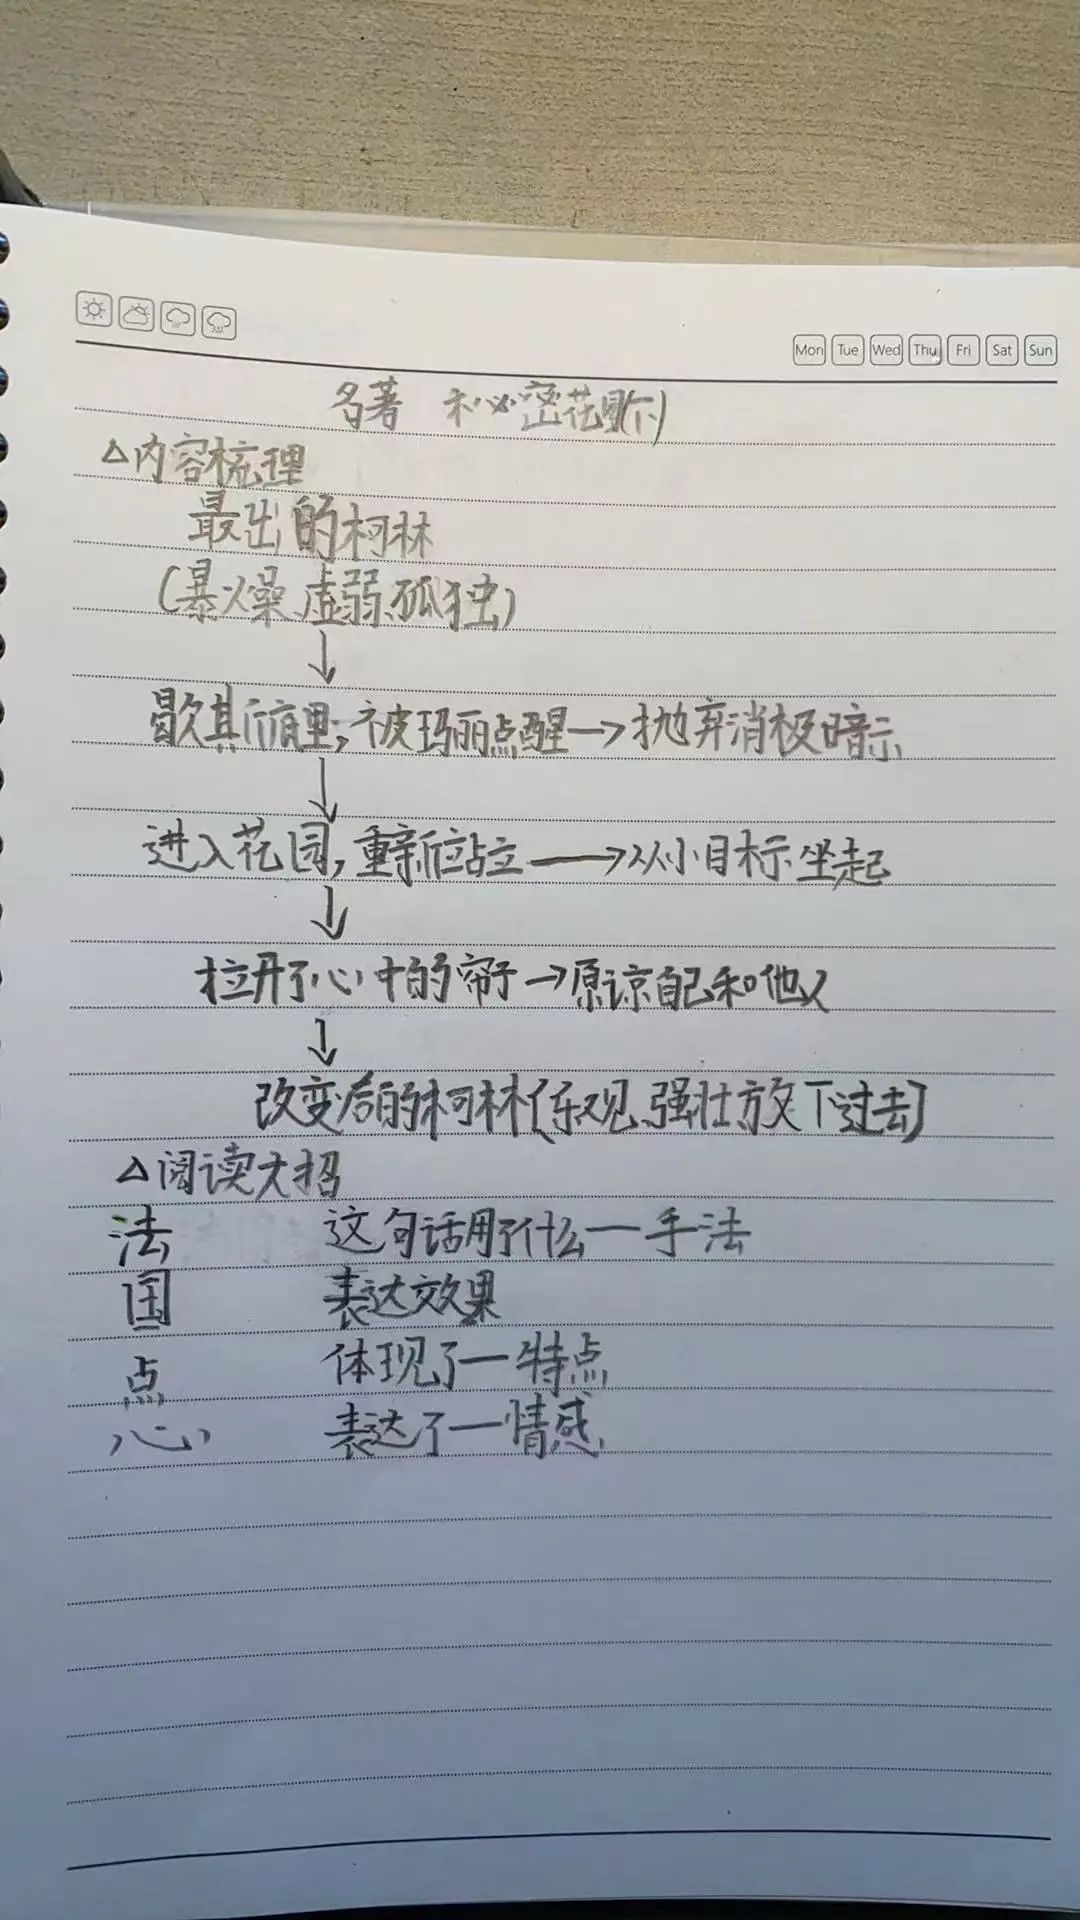 Mon Tue Wed Thu Fri Sat Sun
名著 秘密花园(下)
△内容梳理
最出的柯林
(暴燥、虚弱、孤独)
↓
歇斯底里,被玛丽点醒→抛弃消极暗示
↓
进入花园,重新站立→从小目标坐起
↓
拉开了心中的帘子→原谅自己和他人
↓
改变后的柯林(乐观、强壮放下过去)
△阅读大招
法 这句话用了什么一手法
国 表达效果
点 体现了一特点
心 表达了一情感